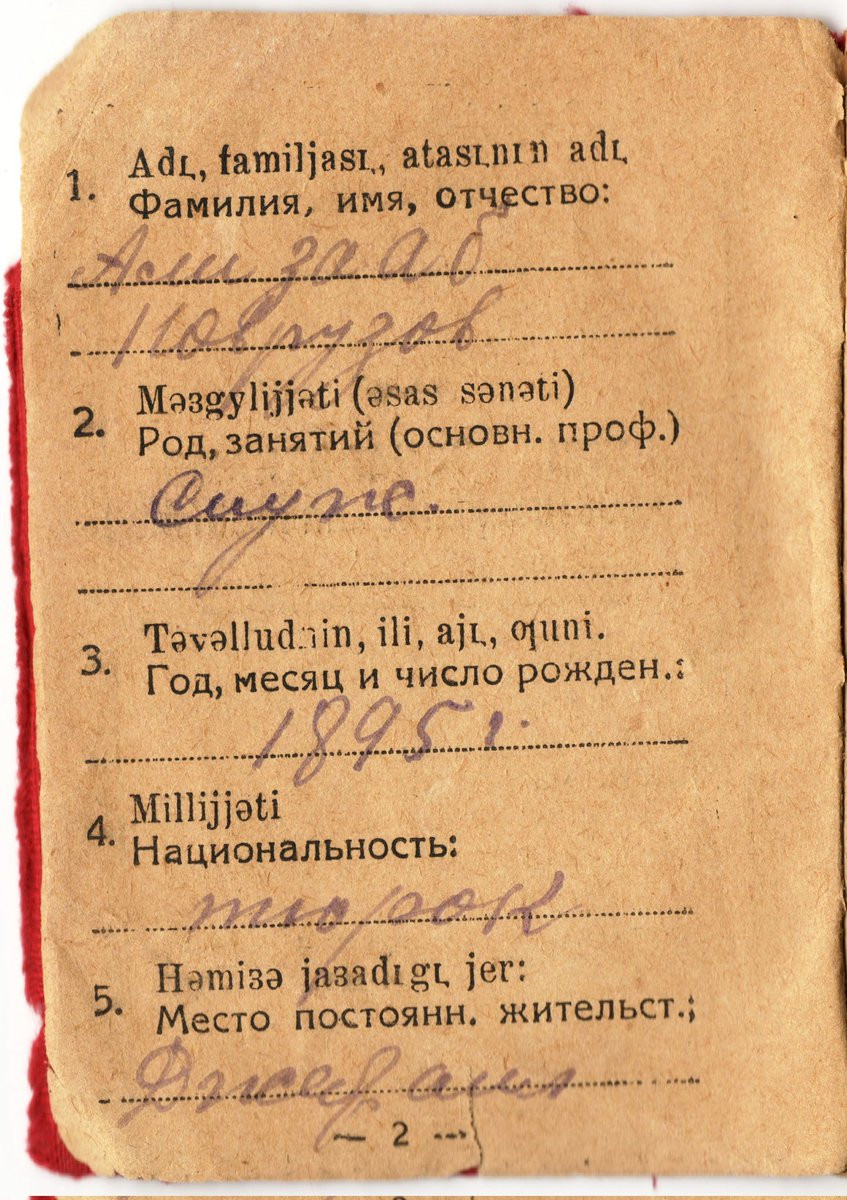 1. Adь, familjasь, atasьnьn adь
Фамилия, имя, отчество:
Али за аб
Новрузов
2. Məƨgylijjəti (əsas sənəti)
Род, занятий (основн. проф.)
Служ.
3. Təvəlludnin, ili, ajь, ƣuni.
Год, месяц и число рожден.:
1895 г.
4. Millijjəti
Национальность:
тюрок
5. Həmiƨə jaƨadıgь jer:
Место постоянн. жительст.;
— 2 —